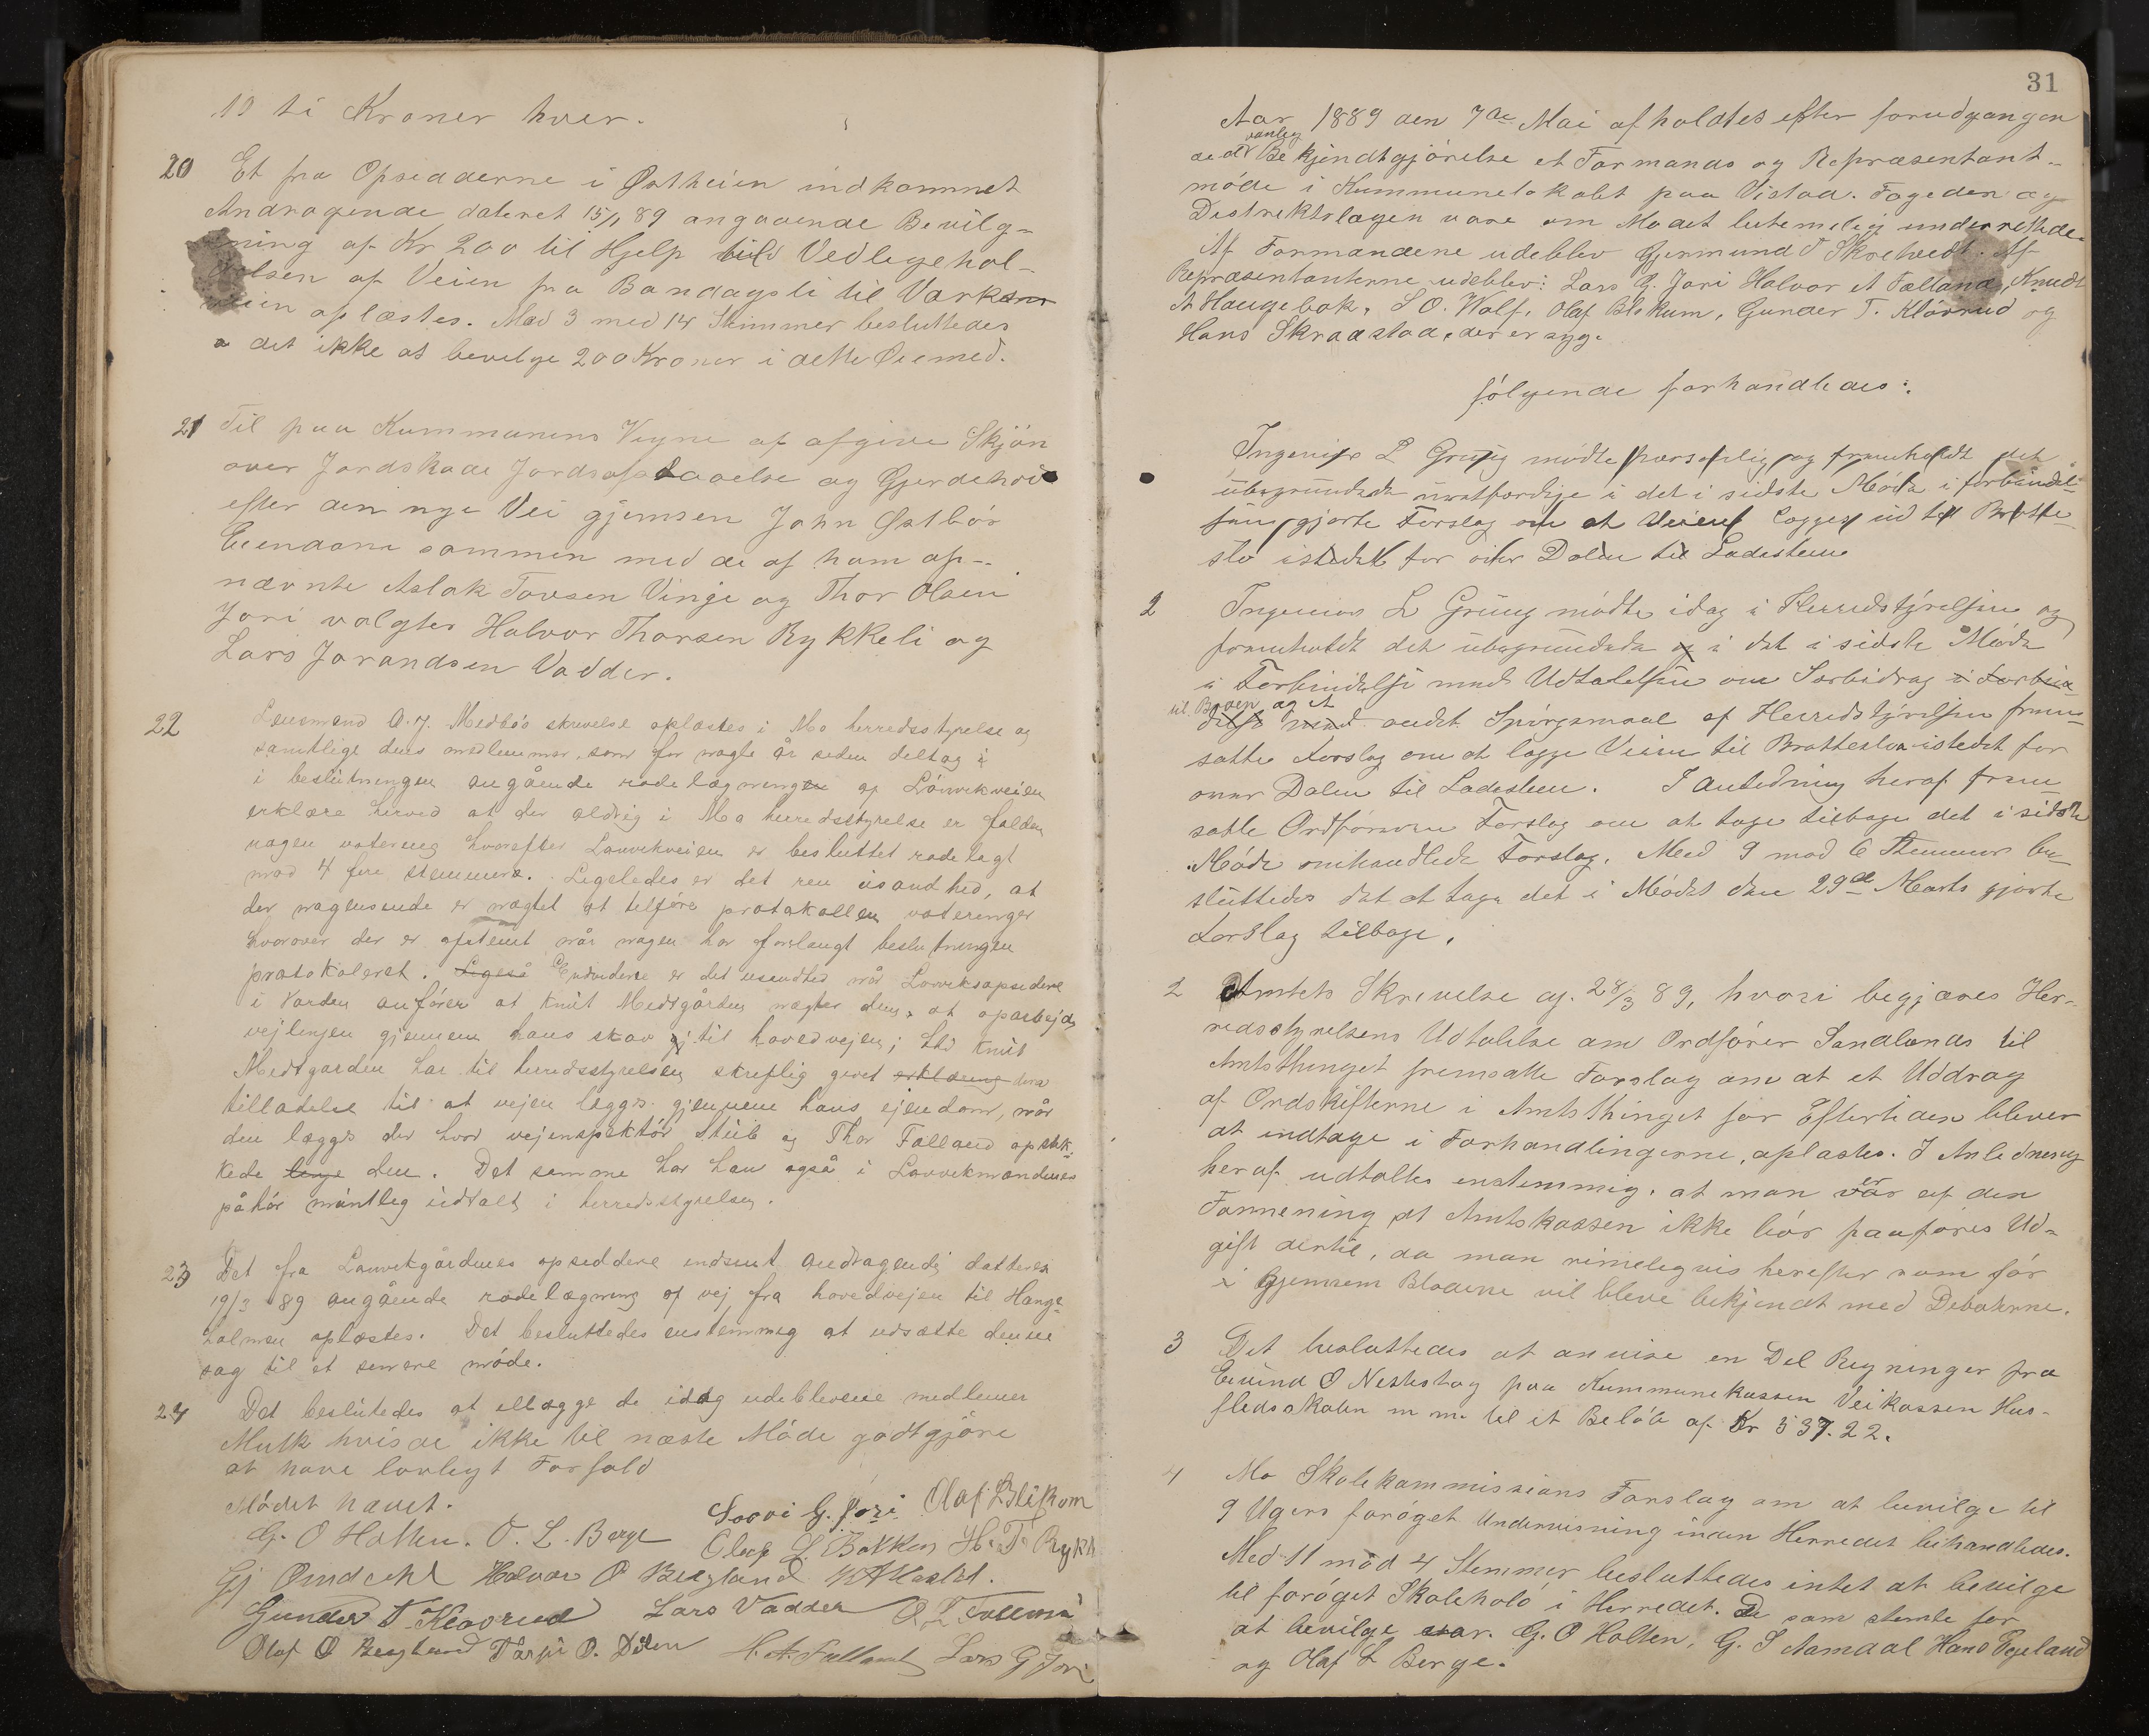 10 ti Kroner hver.
20 Et fra Opsidderne i Østheien indkommet
Andragende dateret 15/1 89 angaaende Bevilg-
ning af Kr 200 til Hjelp til Vedligehol-
delsen af Veien fra Bandagsli til
veien oplæstes. Mod 3 med 14 Stemmer besluttedes
det ikke at bevilge 200 Kroner i dette Øiemed.
21 Til paa Kommunens Vegne at afgive Skjön
over Jordskade Jordsafstaaelse og Gjerdehold
efter den nye Vei gjennem John Østbös
Eiendom sammen med de af ham op-
nævnte Aslak Tovsen Vinje og Thor Olsen
Jori valgtes Halvor Thorsen Rykkeli og
Lars Jorandsen Vadder.
22 Lensmand A. J. Medbös skrivelse oplæstes i Mo herredsstyrelse og
samtlige dens medlemmer, som for nogle år siden deltog i
i beslutningen angående rodelægningen af Lövvikveien
erklære herved at der aldrig i Mo herredsstyrelse er falden
nogen votering hvorefter Lauvikveien er besluttet rodelagt
mod 4 fire stemmer. Ligeledes er det ren usandhed, at
der nogensinde er nægtet at tilføre protokollen voteringer
hvorover der er afstemt når nogen har forlangt beslutningen
protokoleret. Ligeså Endvidere er det usandhed når Lauviksopsiddere
i Varden anförer at Knut Medtgården nægter dem at oparbejde
vejlinjen gjennem hans skov til hovedvejen; thi Knut
Medtgarden har til herredsstyrelsen skriftlig givet erklæring dera
tilladelse til at vejen lægges gjennem hans ejendom, når
den lægges der hvor vejinspektör Stub og Thor Falland opstik-
kede den. Det samme har han også i Lauvikmændenes
påhör mundtlig udtalt i herredsstyrelsen.
23 Det fra Lauvikgårdenes opsiddere indsent andragende datteret
19/3 89 angående rodelægning af vej fra hovedvejen til Hauge-
holmen oplæstes. Det besluttedes enstemmig at udsætte denne
sag til et senere möde.
24 Det beslutedes at ilægge de idag udeblevene medlemer
Mulk hvis de ikke til næste Möde godtgjöre
at have lovligt Forfald
Mödet hævet.
G. O Holten. O. L. Berge Soovi G. Jori. Olaf Blikom
Olaf L. Bakken H. T. Rykk
Halvor O Bergland
Gunder T. Klovrud Lars Vadder
Olaf O Bergland Tarjei O. Dalen H. A. Falland Lars G Jori
31
Aar 1889 den 7de Mai afholdtes efter forudgangen
de vanlig Bekjendtgjörelse et Formands og Repræsentant-
möde i Kummunelokalet paa Vistad. Fogeden og
Destriktslægen vare om Mödet betimelig underrettede.
Af Formændene udeblev Gjermund T Skrehvedt. Af
Repræsentanterne udeblev: Lars G. Jori Halvor A Falland, Knudt
A Haugebak, S O. Wolf, Olaf Blekum, Gunder T. Klövrud og
Hans Skraastad, der er syg.
fölgende forhandledes:
Ingeniör L Grüng mödte personlig og fremholdt det
ubegrundede uretfærdige i det i sidste Möde i forbindel-
sen gjorte Forslag om at Veien lægges ud til Bratte-
slo istedet for over Dalen til Ladesteen
2 Ingeniør L Grüng mödte idag i Herredstyrelsen og
fremholdt det ubegrundede og i det i sidste Möde
i Forbindelse med Udtalelsen om Særbidrag i Forbin-
til Broen og et
delse med andet Spörgsmaal af Herredstyrelsen frem-
satte Forslag om at lægge Veien til Bratteslo istedet for
over Dalen til Ladesteen. I Anledning heraf frem
satte Ordföreren Forslag om at tage tilbage det i sidste
Möde omhandlede Forslag. Med 9 mod 6 Stemmer be
sluttedes det at tage det i Mödet den 29de Marts gjorte
Forslag tilbage.
2 Amtets Skrivelse af. 28/3 89, hvori begjæres Her-
redsstyrelsens Udtalelse om Ordförer Sandlands til
Amtsthinget fremsatte Forslag om at et Uddrag
af Ordskifterne i Amtsthinget for Eftertiden bliver
at indtage i Forhandlingerne, oplæstes. I Anledning
heraf udtaltes enstemmig, at man var er af den
Formening at Amtskassen ikke bör paaföres Ud-
gift dertil, da man rimeligvis herefter som för
i Gjennem Bladene vil blive bekjendt med Debaterne.
3 Det besluttedes at anvise en Del Regninger fra
Eivind O Nesteslog paa Kummunekassen Veikassen Hus-
flidsskolen m m. til et Belöb af Kr 537.22.
4 Mo Skolekommissions Forslag om at bevilge til
9 Ugers foröget Undervisning inden Herredet behandledes.
Med 11 mod 4 Stemmer besluttedes intet at bevilge
til foröget Skolehold i Herredet. De som stemte for
at bevilge var. G. O Holten, G. S Aamdal Hans Egeland
og Olaf L Berge.